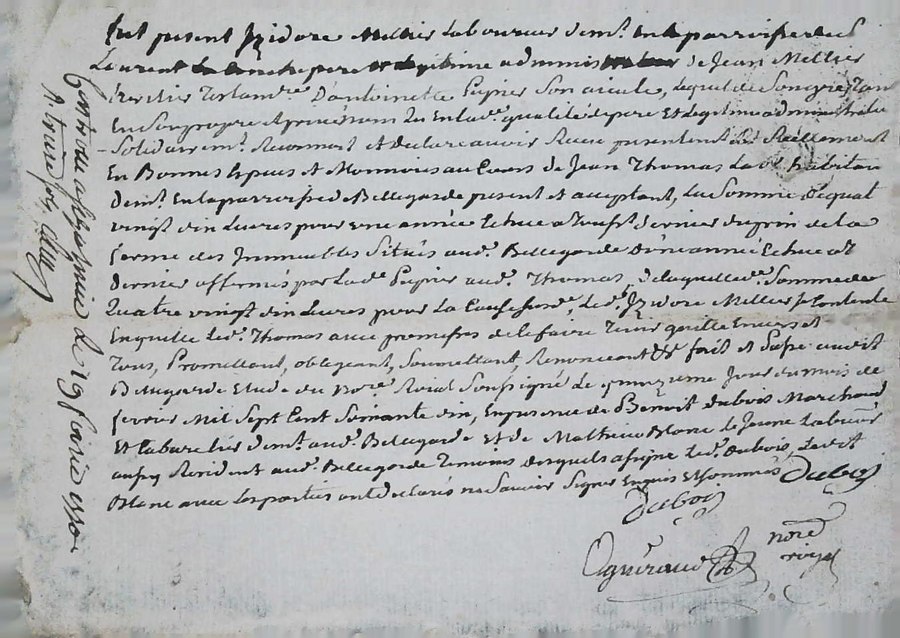 fut present Izidore Mellier Laboureur dem.t En la parroisse de St
Laurent pere et legitime administrateur de Jean Mellier
heritier D'antoinette Papier Son aieule, Lequel de Son gre tan
En Son propre & prive nom qu'En lad.e qualité de pere Et Legitime administrateur
Solidairem.t Reconnoit et declare avoir Receu presentem.t et Reellement
En Bonnes Especes et Monnoies au Cours de Jean Thomas habitan
dem.t En la parroisse de Bellegarde present et acceptant, La Somme de quat
vingt dix Livres pour une année Echue a dernier du prix de la
ferme des Immeubles Situés aud. Bellegarde
dernier affermés par lad.e Papier aud. Thomas, de laquelle d.e Somme de
Quatre vingt dix Livres pour la Cause susd.e Led.t Izidore Mellier se Contente
En quitte led.t Thomas avec promesses de le faire Tenir quitte Envers et
Tous, Promettant, obligeant, Soumettant, Renonceant &c fait et Passé audit
Bellegarde Etude du No.re Roial Soussigné Le quinzieme Jour du mois de
fevrier Mil Sept Cent Soixante dix, En presence de Benoit dubois Marchand
Et Cabaretier dem.t aud. Bellegarde Et de Mathieu Blanc le Jeune Labour.r
aussy Resident aud. Bellegarde Temoins desquels a signé led.t Dubois, Ledit
Blanc avec Les parties ont declarés ne Savoir Signer Enquis Et Sommés Dubois
Dubois
nore
royal
Controlé a le 19 fevrier 1770
R. treize sols